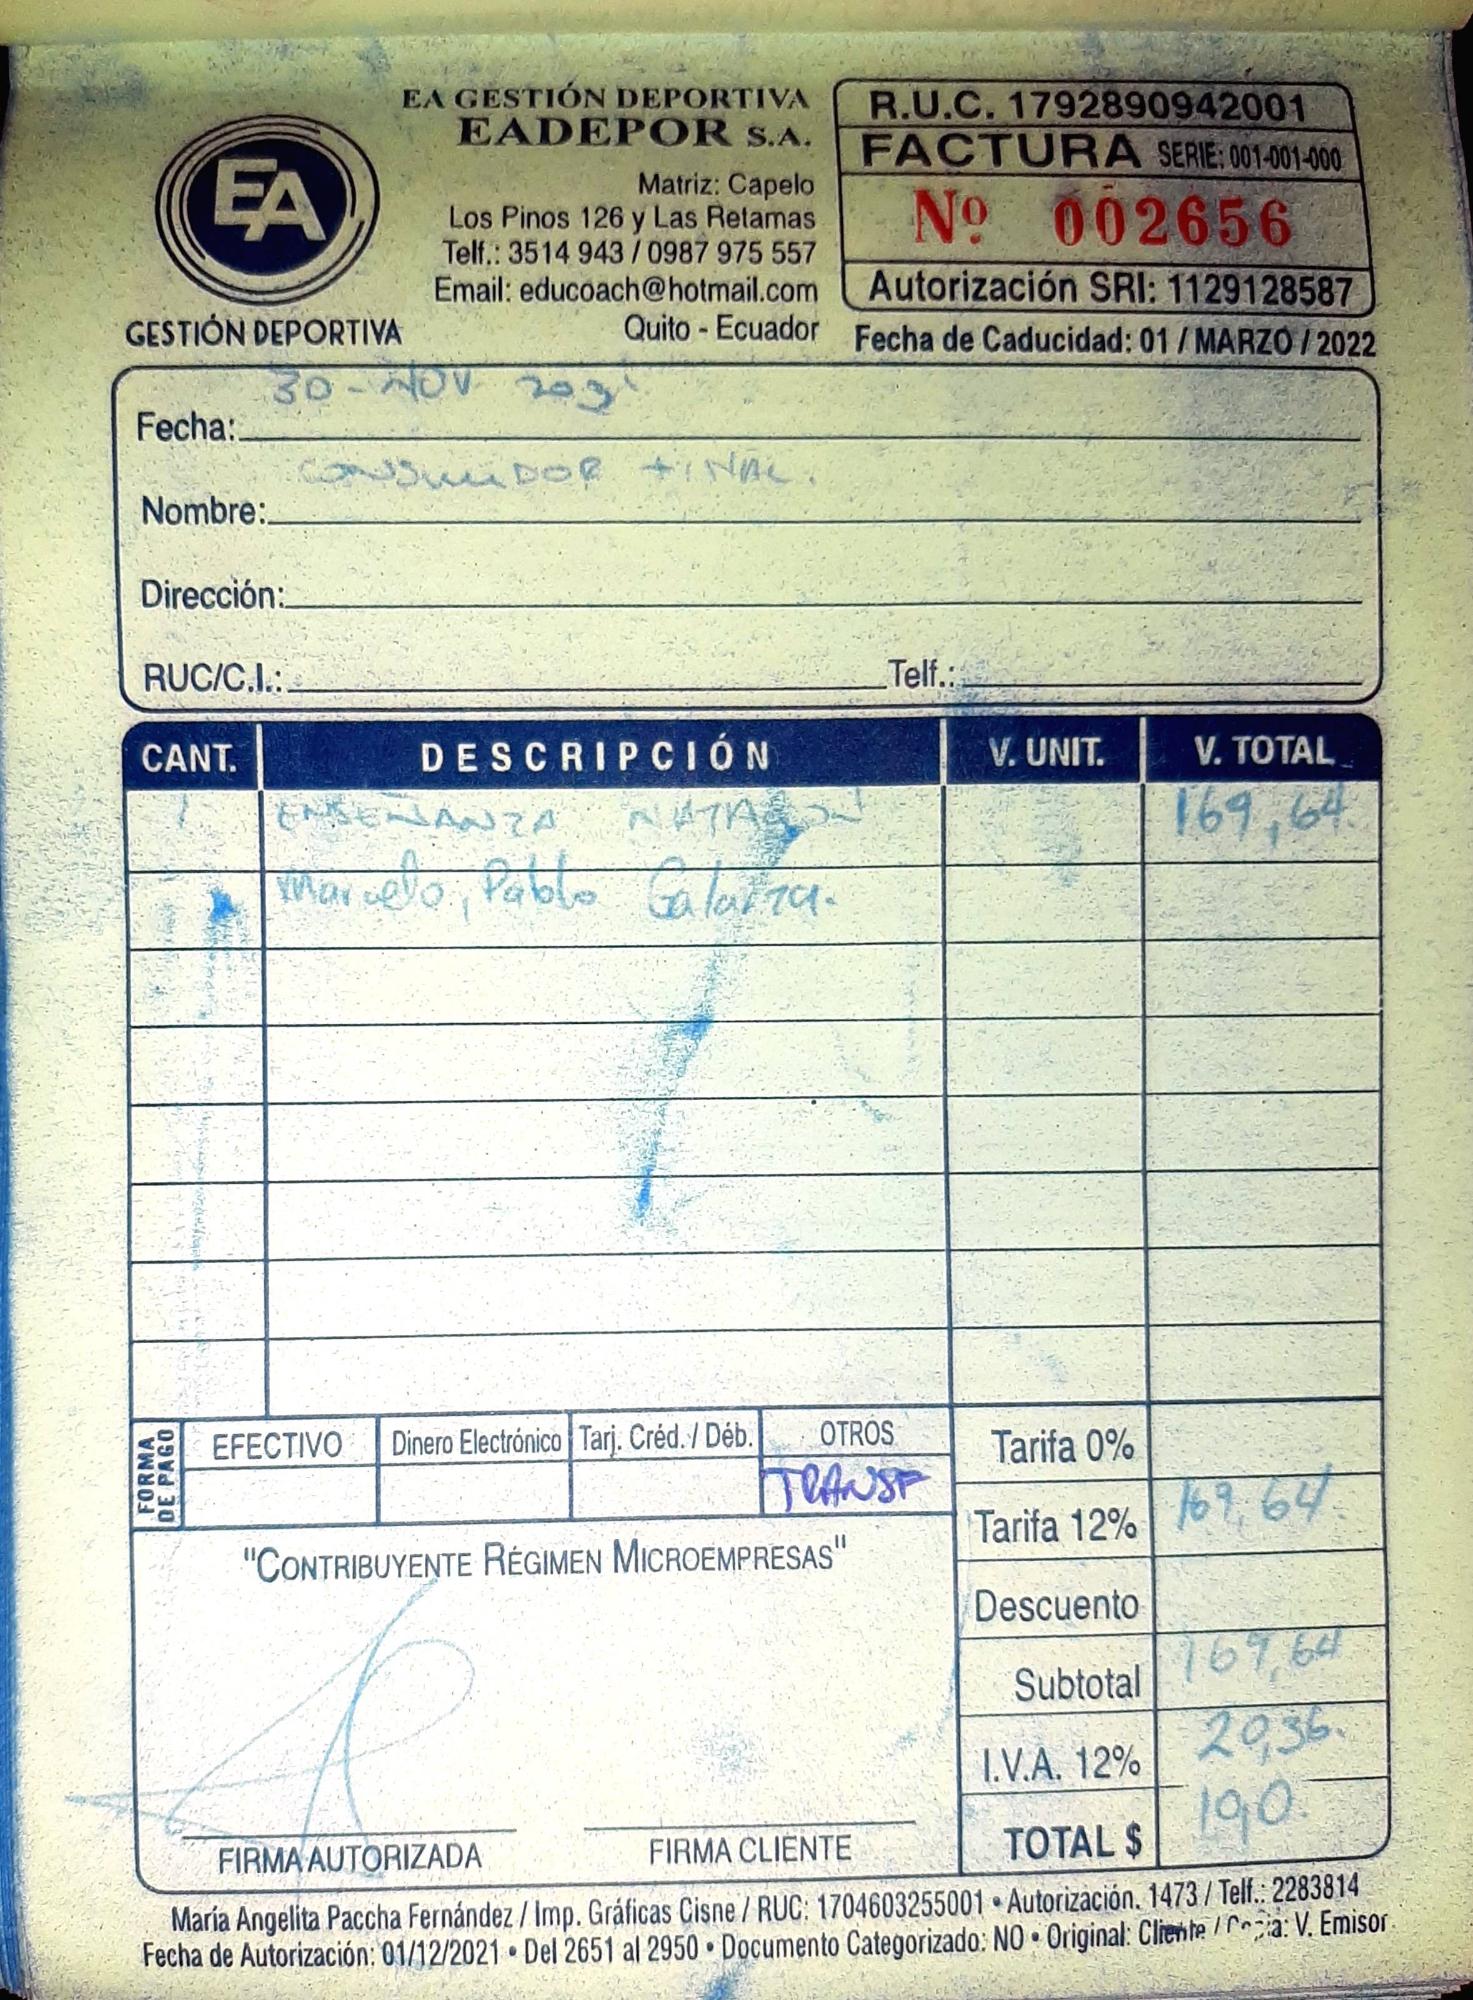 EA GESTIÓN DEPORTIVA
EADEPOR S.A.
EA
GESTIÓN DEPORTIVA
Matriz: Capelo
Los Pinos 126 y Las Retamas
Telf.: 3514 943 / 0987 975 557
Email: educoach@hotmail.com
Quito - Ecuador
R.U.C. 1792890942001
FACTURA SERIE: 001-001-000
Nº 002656
Autorización SRI: 1129128587
Fecha de Caducidad: 01 / MARZO / 2022
Fecha: 30 - NOV 2021
Nombre: CONSUMIDOR FINAL.
Dirección:
RUC/C.I.: Telf.:
CANT. DESCRIPCIÓN V. UNIT. V. TOTAL
1 ENSEÑANZA NATACIÓN 169,64.
Marcelo, Pablo Galarza.
FORMA DE PAGO
EFECTIVO Dinero Electrónico Tarj. Créd. / Déb. OTROS
TRANSF
Tarifa 0%
Tarifa 12% 169,64.
Descuento
Subtotal 169,64
I.V.A. 12% 20,36.
TOTAL $ 190.
"CONTRIBUYENTE RÉGIMEN MICROEMPRESAS"
FIRMA AUTORIZADA FIRMA CLIENTE
María Angelita Paccha Fernández / Imp. Gráficas Cisne / RUC: 1704603255001 • Autorización. 1473 / Telf.: 2283814
Fecha de Autorización: 01/12/2021 • Del 2651 al 2950 • Documento Categorizado: NO • Original: Cliente / Copia: V. Emisor